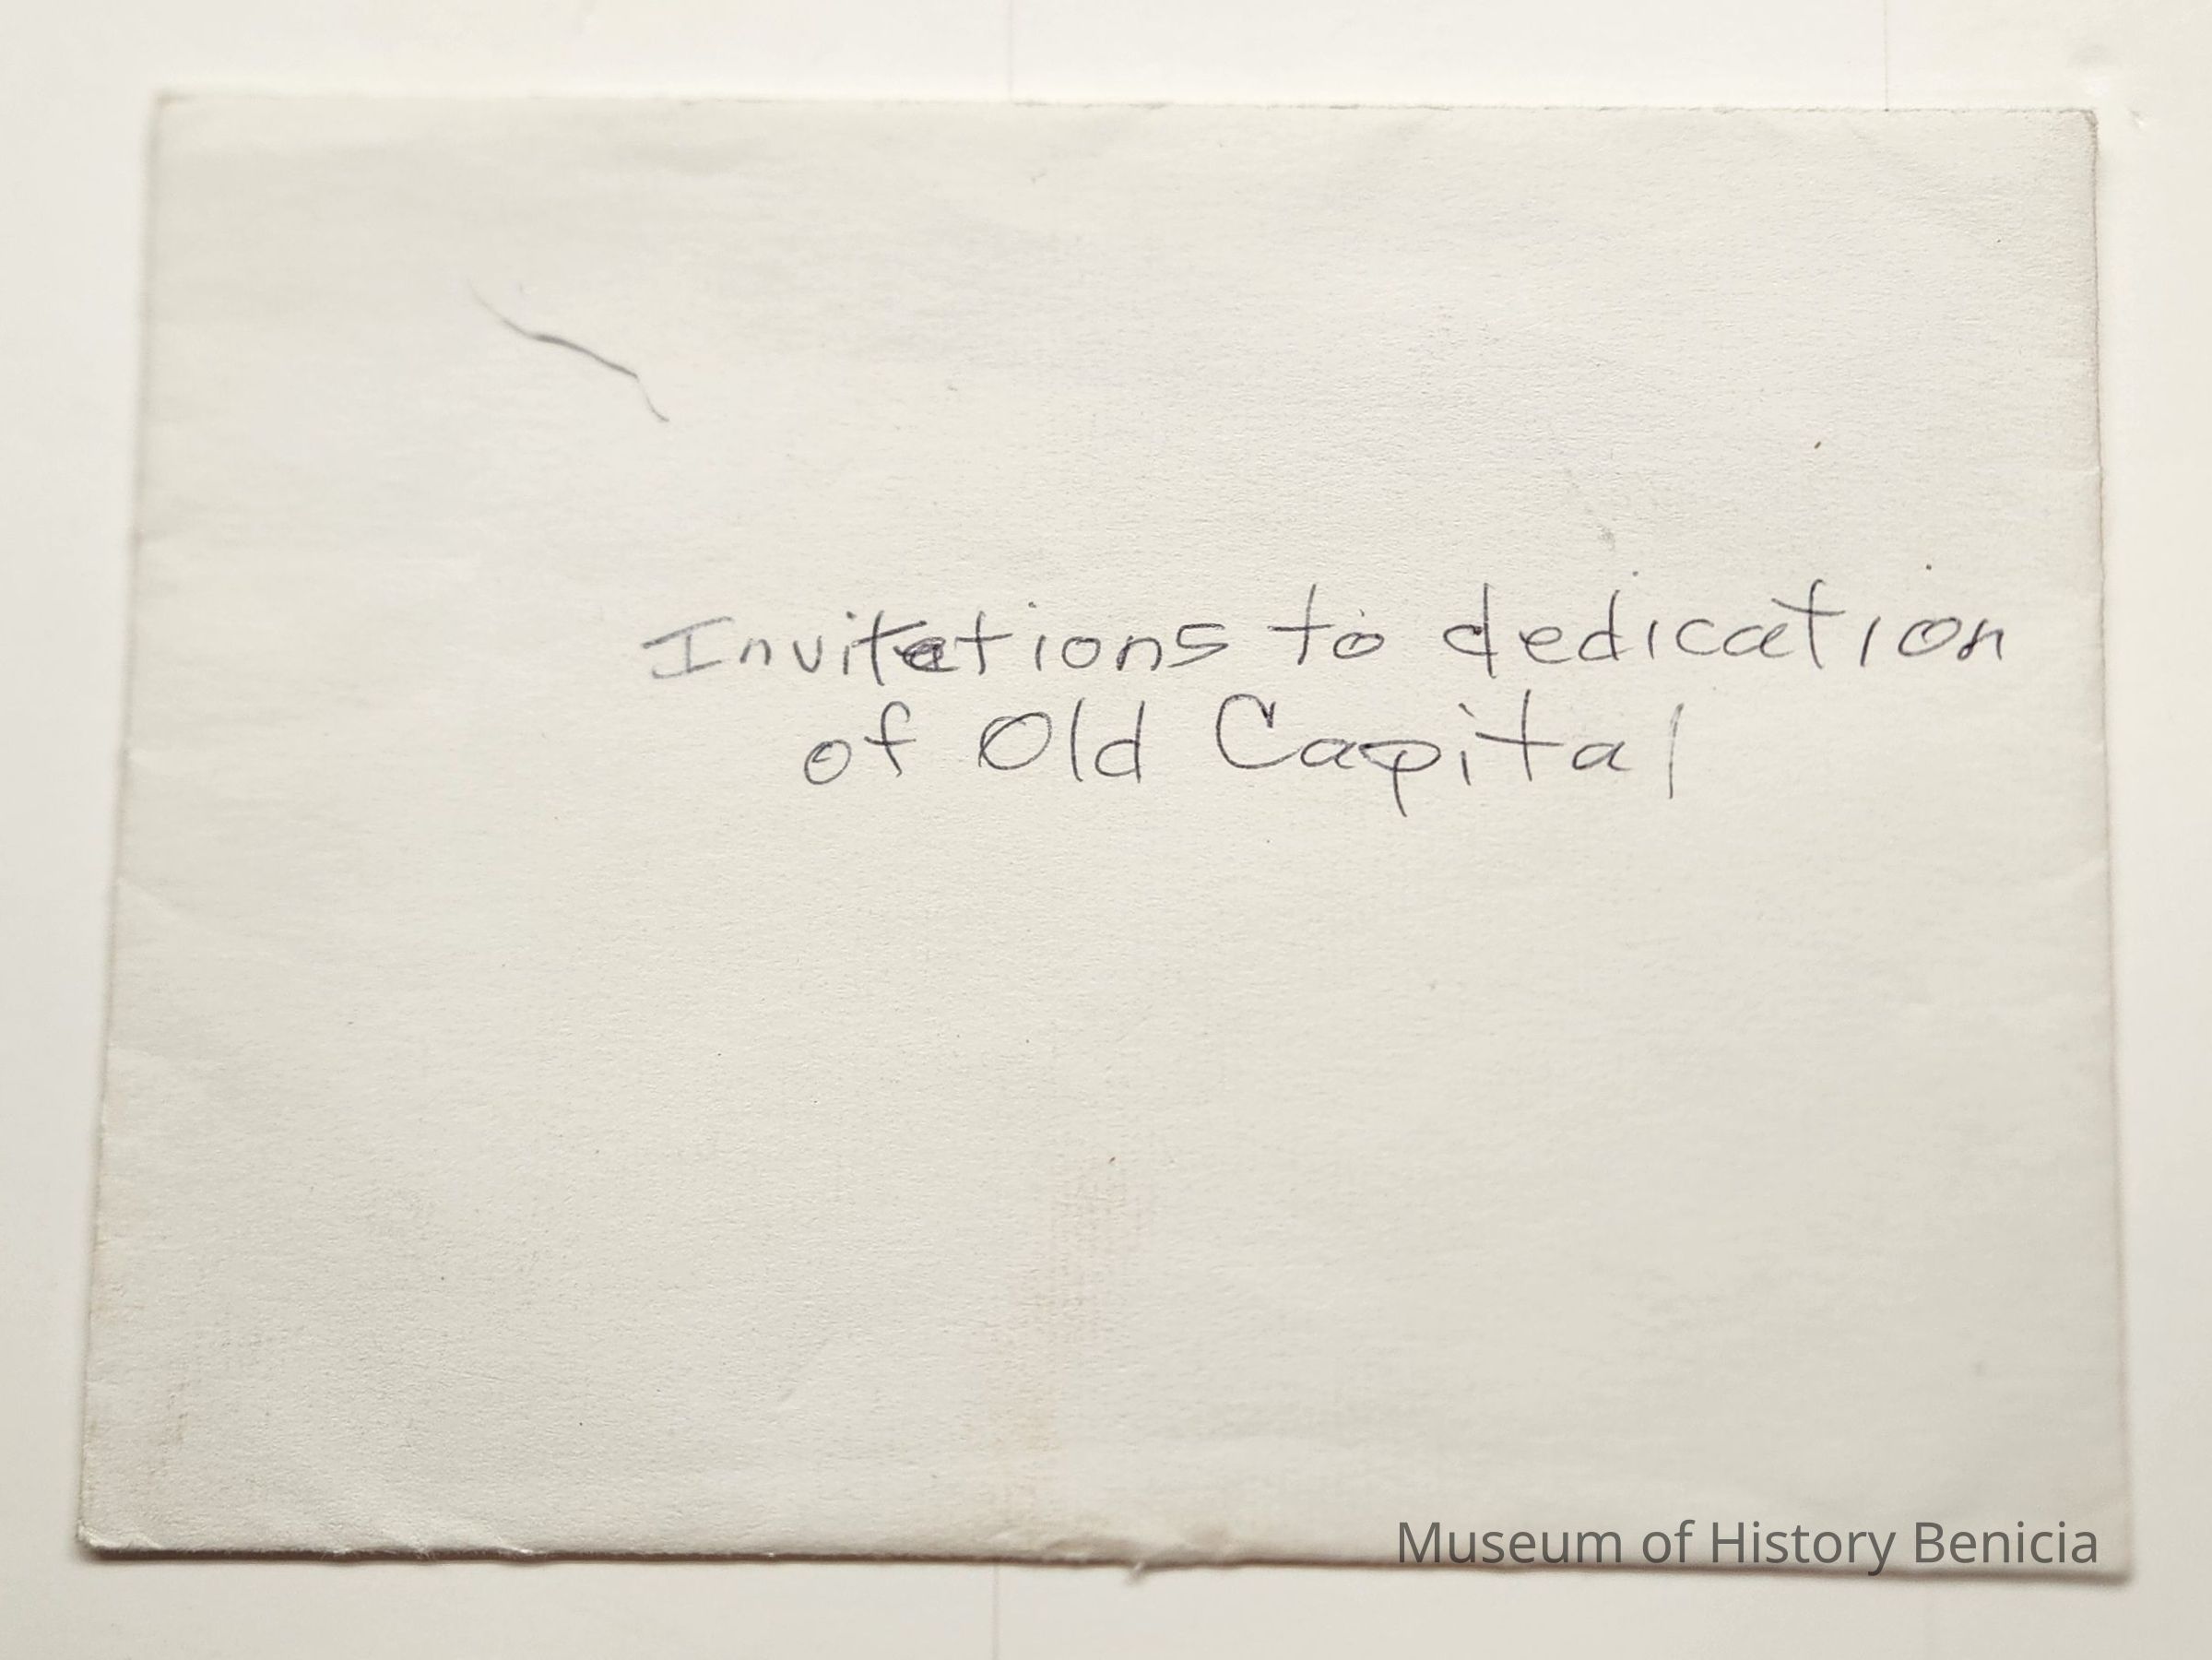 Invitations to dedication
of Old Capital
Museum of History Benicia